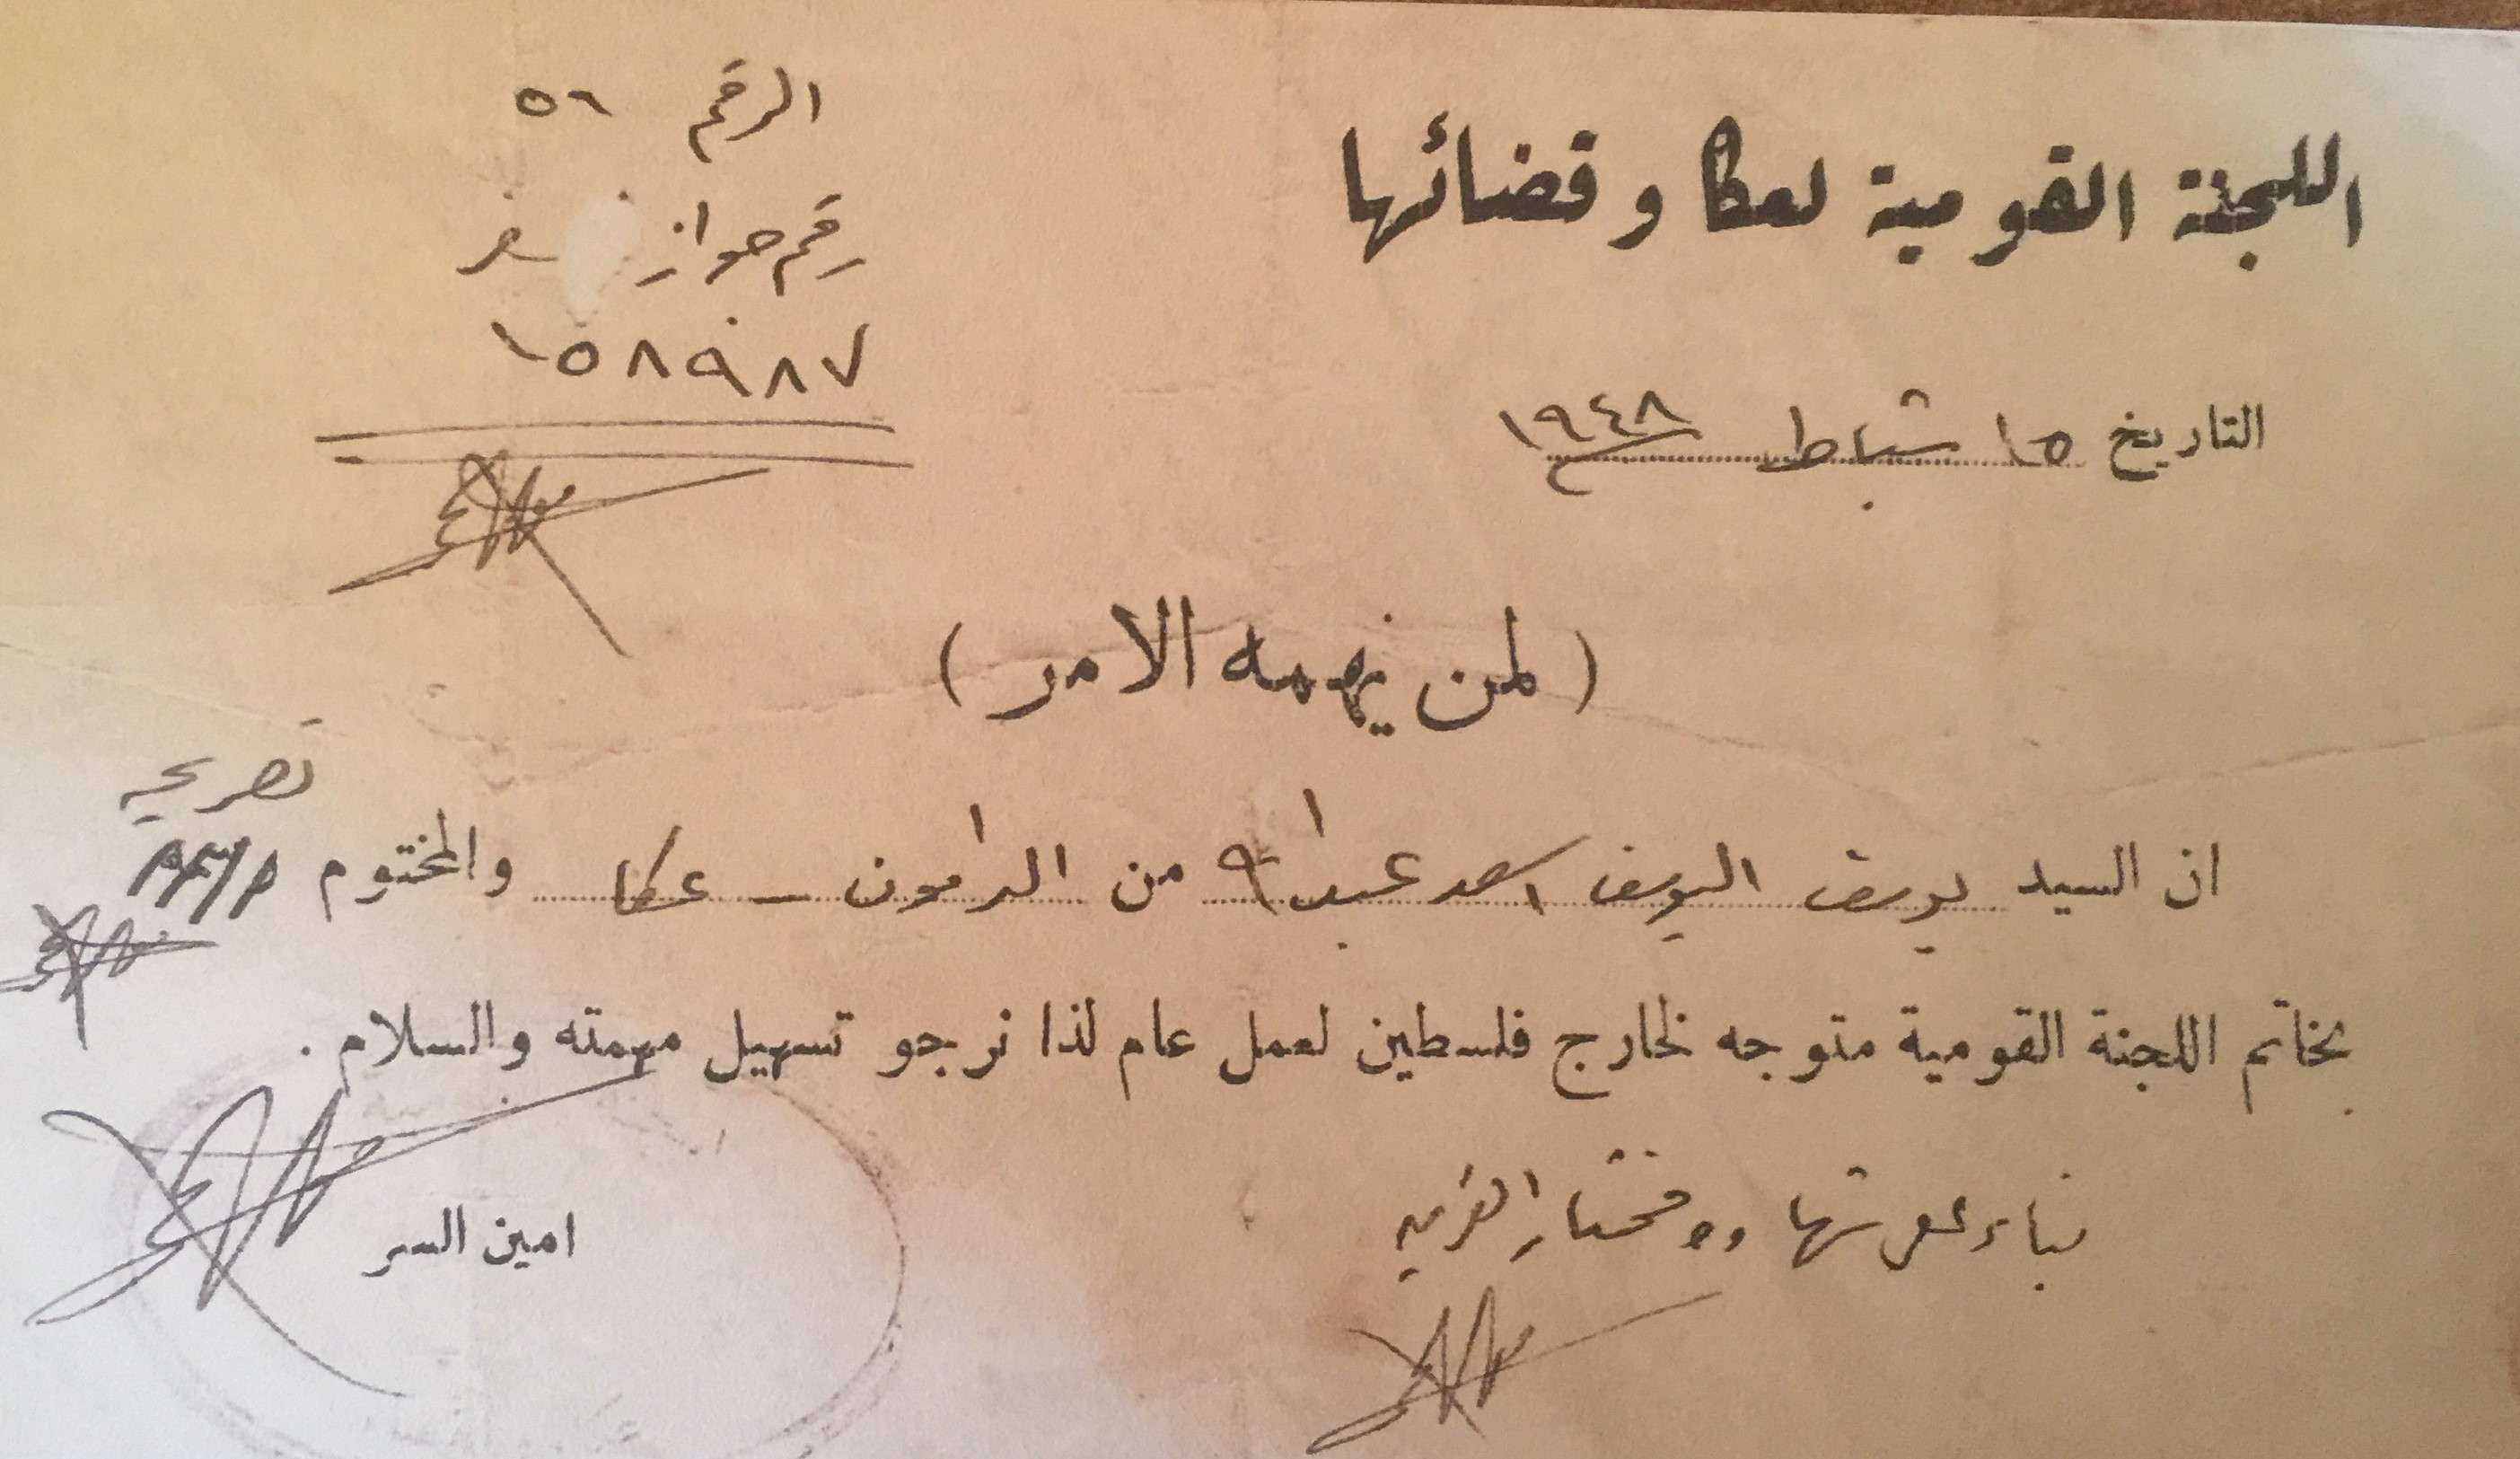 اللجنة القومية لعكا وقضائها
الرقم ٥٦
رقم جواز سفر
١٥٨٩٨٧
التاريخ ١٥ شباط ١٩٤٨
( لمن يهمه الامر )
ان السيد يوسف اليوسف اسعد من الدامون - عكا والمختوم
بخاتم اللجنة القومية متوجه لخارج فلسطين لعمل عام لذا نرجو تسهيل مهمته والسلام .
ومختار القرية
امين السر